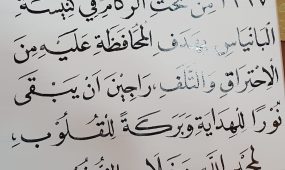 من تحت الركام في كنيسة
البانياس بهدف المحافظة عليه من
الاحتراق والتلف، راجين أن يبقى
نورًا للهداية وبركة للقلوب،